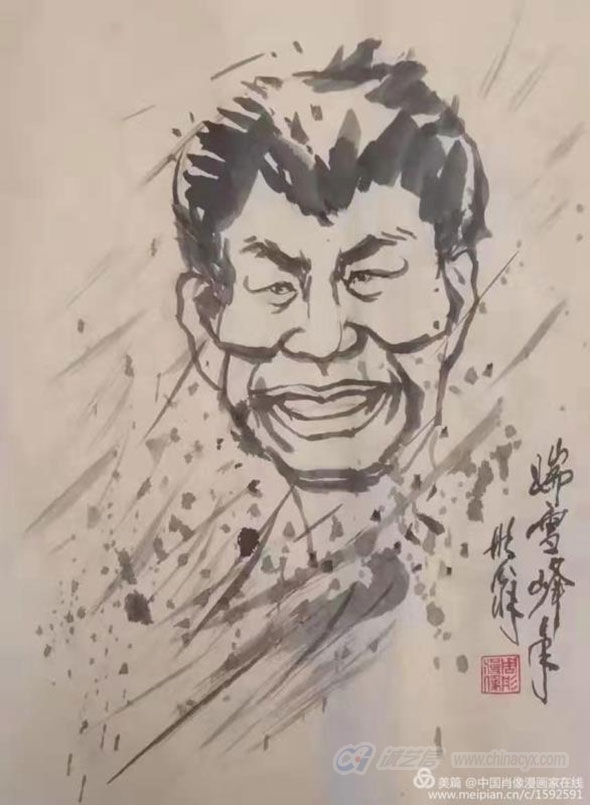 瑞雪峰年
诚艺信 www.chinacyx.com
美篇 @中国肖像漫画家在线
www.meipian.cn/c/1592591